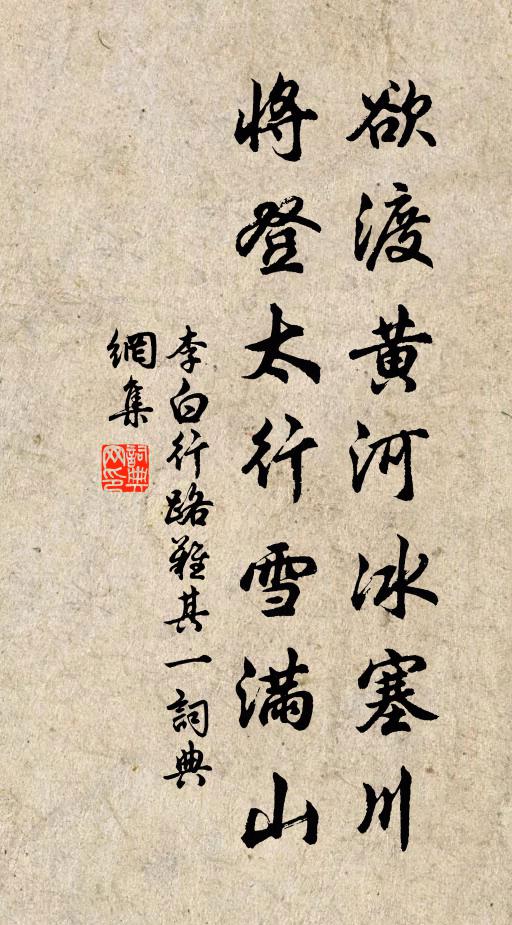 欲渡黄河冰塞川
將登太行雪满山
李白行路難其一詞典
網集
詞典
网印